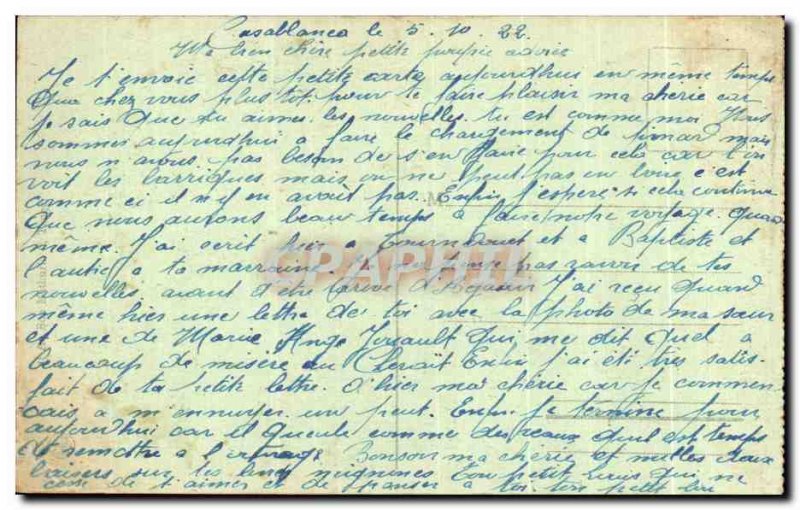 Casablanca le 5.10.22
Ma bien chère petite poupée adorée
Je t'envoie cette petite carte aujourdhui en même temps
Que chez vous plus tot pour te faire plaisir ma chérie car
je sais que tu aimes les nouvelles tu est comme moi Nous
sommes aujourdhui a faire le chargement de pinard mais
nous n'avons pas besoin de s'en faire pour cela car l'on
voit les barriques mais on ne peut pas en boire c'est
comme ci il n'y en avait pas. Enfin j'espère si cela continue
Que nous aurons beau temps a faire notre voyage quand
même. J'ai écrit hier a et a Baptiste et
l'autre a ta marraine. Je ne pense pas ravoir de tes
nouvelles avant d'être arrivé J'ai reçu quand
même hier une lettre de toi avec la photo de ma sœur
et une de Marie Ange Jouault qui me dit Quel a
beaucoup de misère au Enfin j'ai été très satis-
fait de ta petite lettre. d'hier ma chérie car je commen
cais a m'ennuyer un peut. Enfin je termine pour
aujourdhui car il gueule comme des veaux qu'il est temps
de remettre a l'ouvrage Bonsoir ma chérie et milles doux
baisers sur tes mignonnes Ton petit qui ne
cesse de t'aimer et de penser a toi ton petit
CPAPHIL